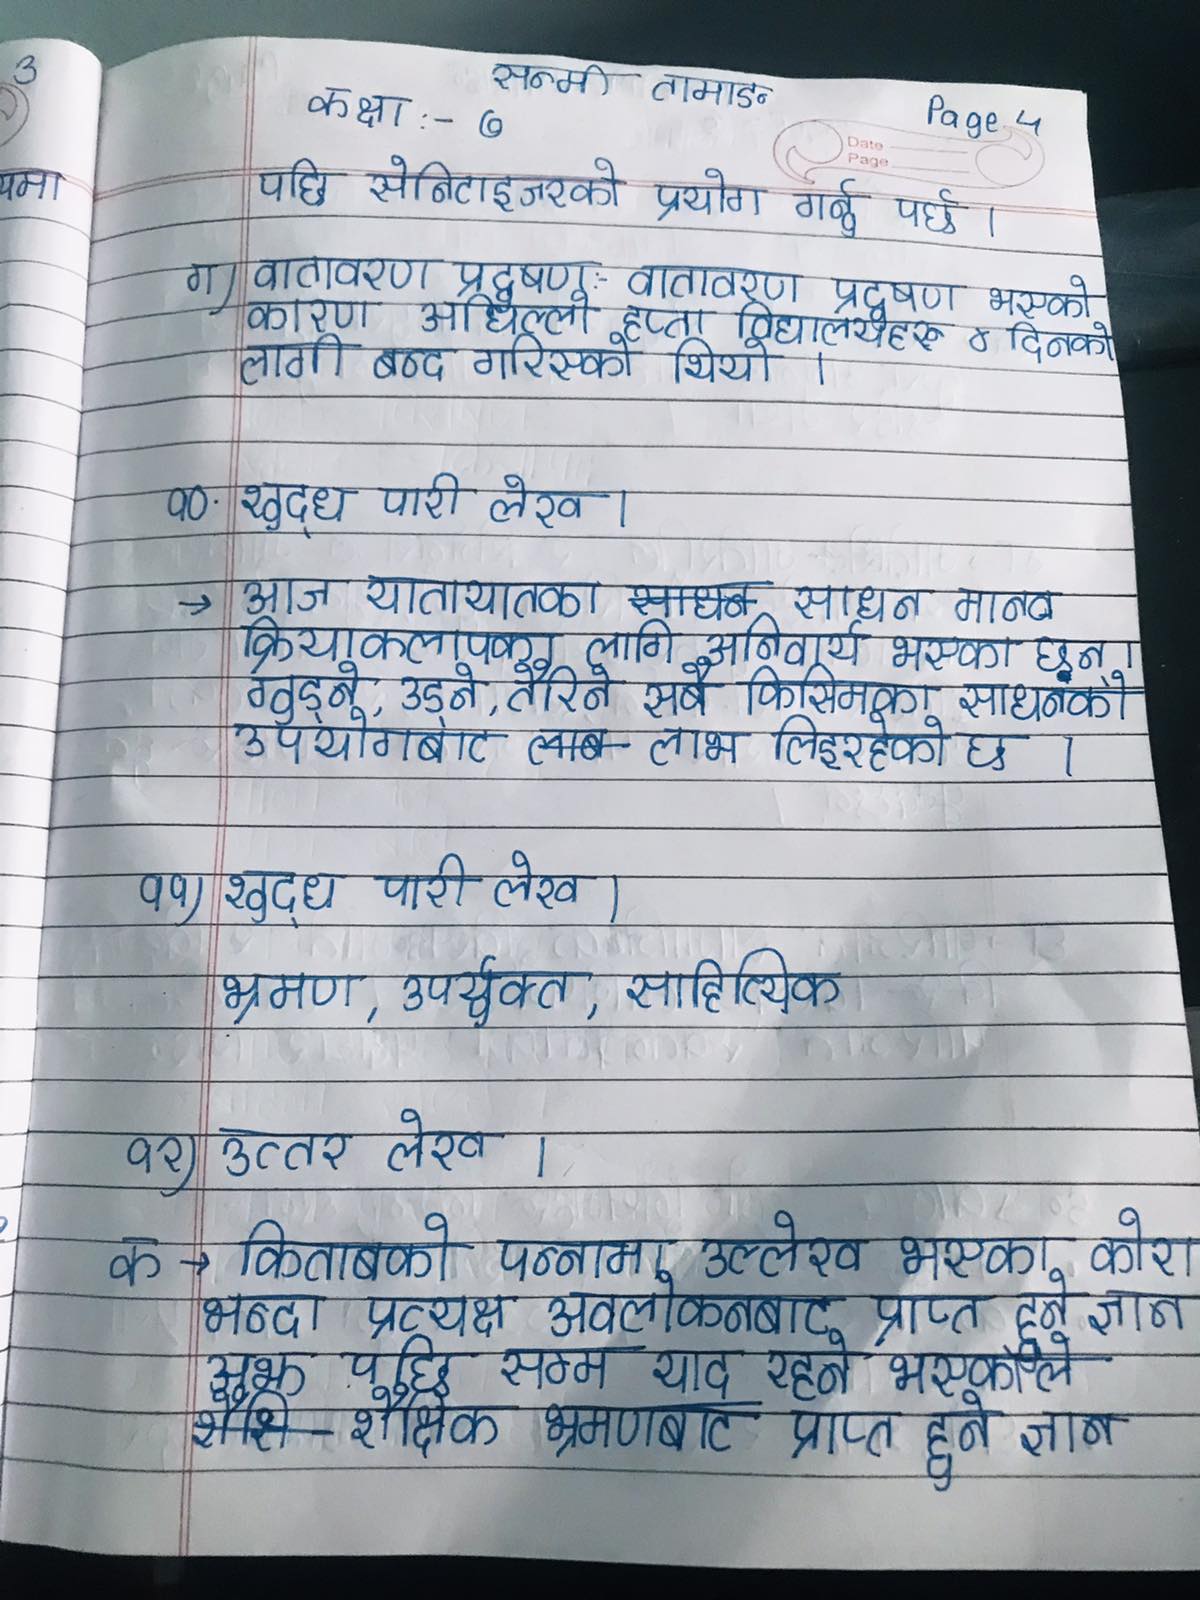 ३
यमा
सन्मी तामाङ
कक्षा :- ७
Page 4
Date
Page
पछि सेनिटाइजरको प्रयोग गर्नु पर्छ ।
ग) वातावरण प्रदुषण :- वातावरण प्रदुषण भएको
कारण अघिल्लो हप्ता विद्यालयहरू ४ दिनको
लागी बन्द गरिएको थियो ।
१०. शुद्ध पारी लेख ।
→ आज यातायातका साधन साधन मानव
क्रियाकलापका लागि अनिवार्य भएका छन् ।
गुड्ने, उड्ने, तैरिने सबै किसिमका साधनको
उपयोगबाट लाब लाभ लिइरहेको छ ।
११) शुद्ध पारी लेख ।
भ्रमण, उपर्युक्त, साहित्यिक
१२) उत्तर लेख ।
क → किताबको पन्नामा उल्लेख भएका कोरा
भन्दा प्रत्यक्ष अवलोकनबाट प्राप्त हुने ज्ञान
अझ पछि सम्म याद रहने भएकोले
शैक्षिक भ्रमणबाट प्राप्त हुने ज्ञान